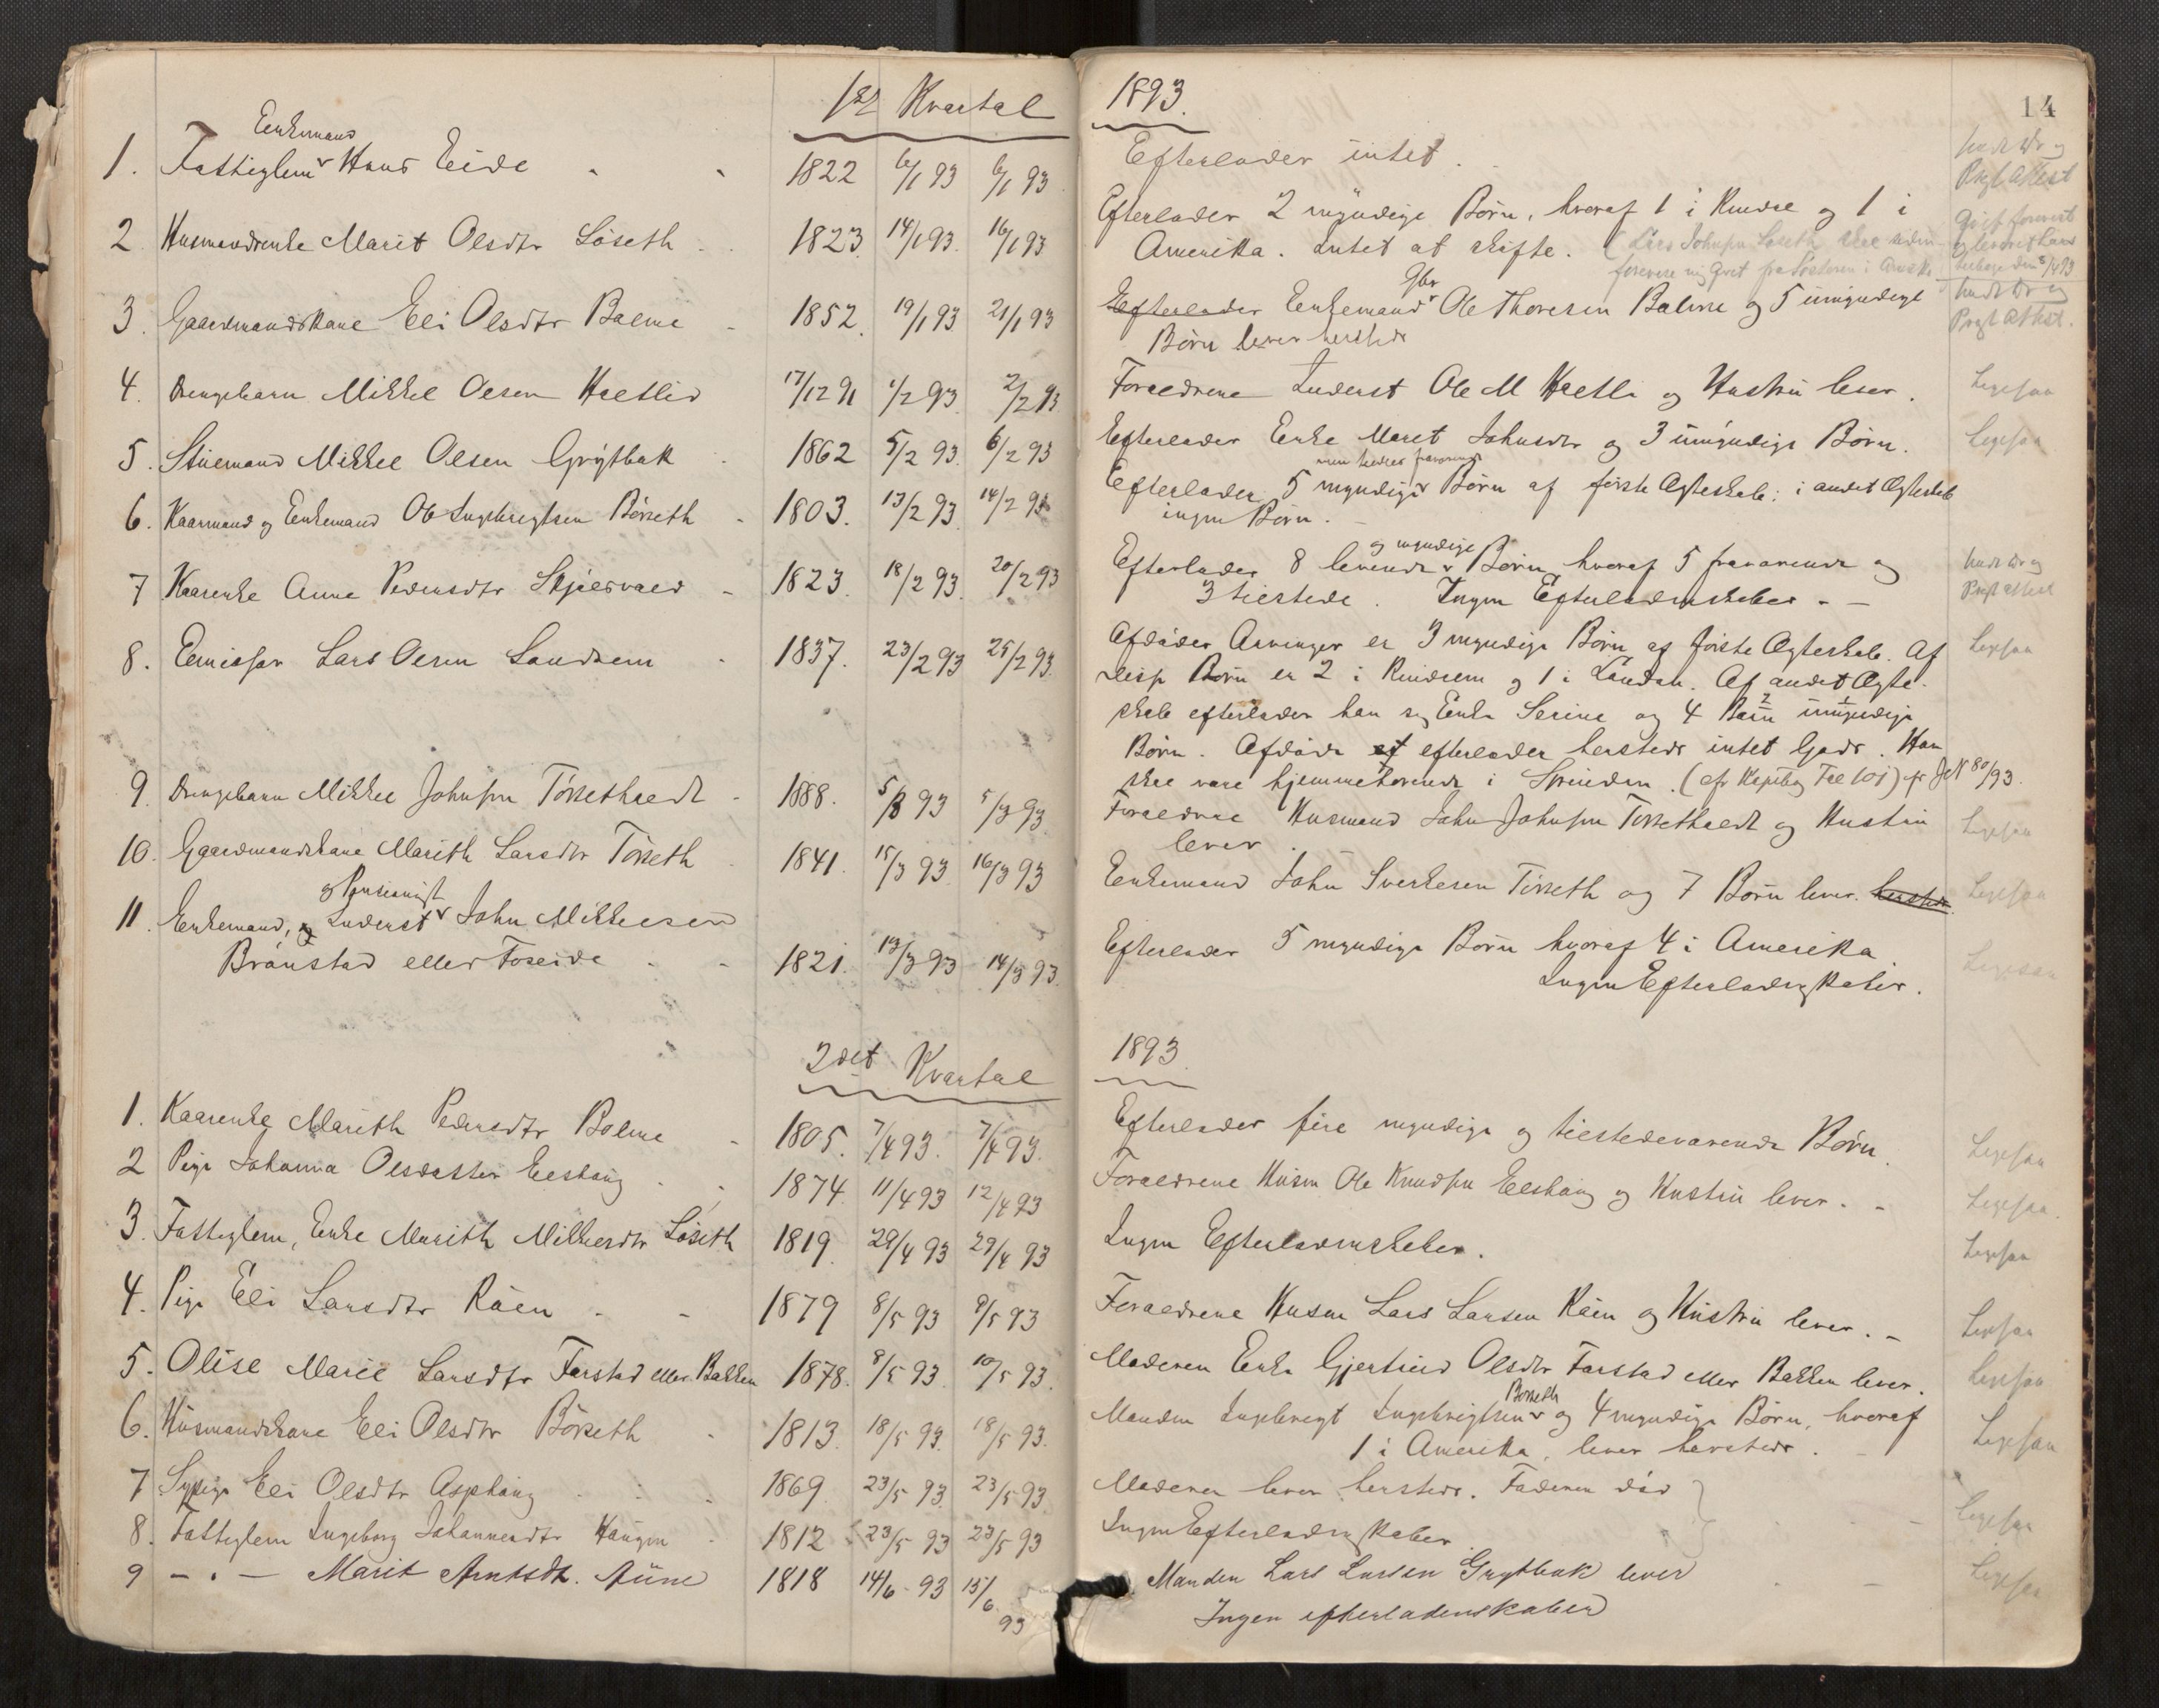 1ste Kvartal
1893.
14
Enkemand
1. Fattiglem Hans Eide - - 1822 6/1 93 6/1 93
Efterlader intet.
2. Husmandsenke Marit Olsdtr Löseth . . 1823. 14/1 93. 16/1 93
Efterlader 2 myndige Börn, hvoraf 1 i og 1 i
Amerika. Intet at skifte. (Lars Johnsen Löseth skal siden
Gbr
3. Gaardmandskone Eli Olsdtr Bolme - 1852. 19/1 93 21/1 93
Efterlader Enkemand Ole Thoresen Bolme og 5 umyndige
Börn lever hersteds
4. Drengebarn Mikkel Olsen Hestlid 17/12 91 1/2 93. 2/2 93
Forældrene Inderst Ole M Hestli og Hustru lever.
Legesaa
5. Stuemand Mikkel Olsen Grytbak . 1862 5/2 93. 6/2 93
Efterlader Enke Maret Johnsdtr og 3 umyndige Börn.
Legesaa
6. Kaarmand og Enkemand Ole Ingebrigtsen Börseth - 1803. 13/2 93. 14/2 93
Efterlader 5 myndige Börn af förste Ægteskab; i andet Ægteskab
ingen Börn. -
7 Kaarenke Anne Pedersdtr Skjölsvold - 1823. 18/2 93. 20/2 93
og myndige
Efterlader 8 levende Börn, hvoraf 5 fraværende og
3 tilstede. Ingen Efterladenskaber - -
8. Emissær Lars Olsen Landsem . 1837. 23/2 93 25/2 93.
Afdödes Arvinger er 3 myndige Börn af förste Ægteskab. Af
disse Börn er 2 i Rindsem og 1 i . Af andet Ægte-
skab efterlader han sig Enke Serine og 4 umyndige
Börn. Afdöde efterlader hersteds intet Gods. Han
skal være hjemmehörende i . (cfr Kopibog 101) cfr JN 80/93.
Legesaa
9. Drengebarn Mikkel Johnsen Törsethhaedt - 1888. 5/3 93 5/3 93.
Forældrene Husmand John Johnsen Törsethhaedt og Hustru
lever.
Legesaa
10. Gaardmandskone Marith Larsdtr Törseth . 1841. 15/3 93. 16/3 93
Enkemand John Sverkesen Törseth og 7 Börn lever. hersteds.
Legesaa
og Pensionist
11. Enkemand, og Inderst John Mikkelsen
Brönstad eller Foseide . - 1821. 13/3 93 14/3 93.
Efterlader 5 myndige Börn hvoraf 4 i Amerika.
Ingen Efterladenskaber.
Legesaa
2det Kvartal
1893.
1. Kaarenke Marith Pedersdtr Bolme - 1805. 7/4 93. 7/4 93.
Efterlader fire myndige og tilstedeværende Börn.
Legesaa
2 Pige Johanna Olsdatter Elshaug . . 1874. 11/4 93 12/4 93
Forældrene Husm Ole Knudsen Elshaug og Hustru lever. -
Legesaa.
3. Fattiglem, Enke Marith Mikkelsdtr Löseth 1819. 29/4 93 29/4 93
Ingen Efterladenskaber.
Legesaa
4. Pige Eli Larsdtr Röen - - 1879 8/5 93 9/5 93
Forældrene Husm Lars Larsen Röen og Hustru lever. -
Legesaa
5. Olise Marie Larsdtr Farstad eller Bakken 1878. 8/5 93. 10/5 93.
Moderen Enke Gjertrud Olsdtr Farstad eller Bakken lever.
Legesaa
6. Husmandskone Eli Olsdtr Börseth . 1813. 18/5 93. 18/5 93.
Börseth
Manden Ingebrigt Ingebrigtsen og 4 myndige Börn, hvoraf
1 i Amerika, lever hersteds. -
Legesaa
7 Sypige Eli Olsdtr Asphaug . . . 1869. 23/5 93. 23/5 93
Moderen lever hersteds. Faderen död
8. Fattiglem Ingeborg Johannesdtr Haugen . 1812 23/5 93 23/5 93
Ingen Efterladenskaber
Legesaa
9 - " - Marit Arntsdtr. Aune 1818 14/6 93 15/6 93
Manden Lars Larsen Grytbak lever
Ingen efterladenskaber
Legesaa